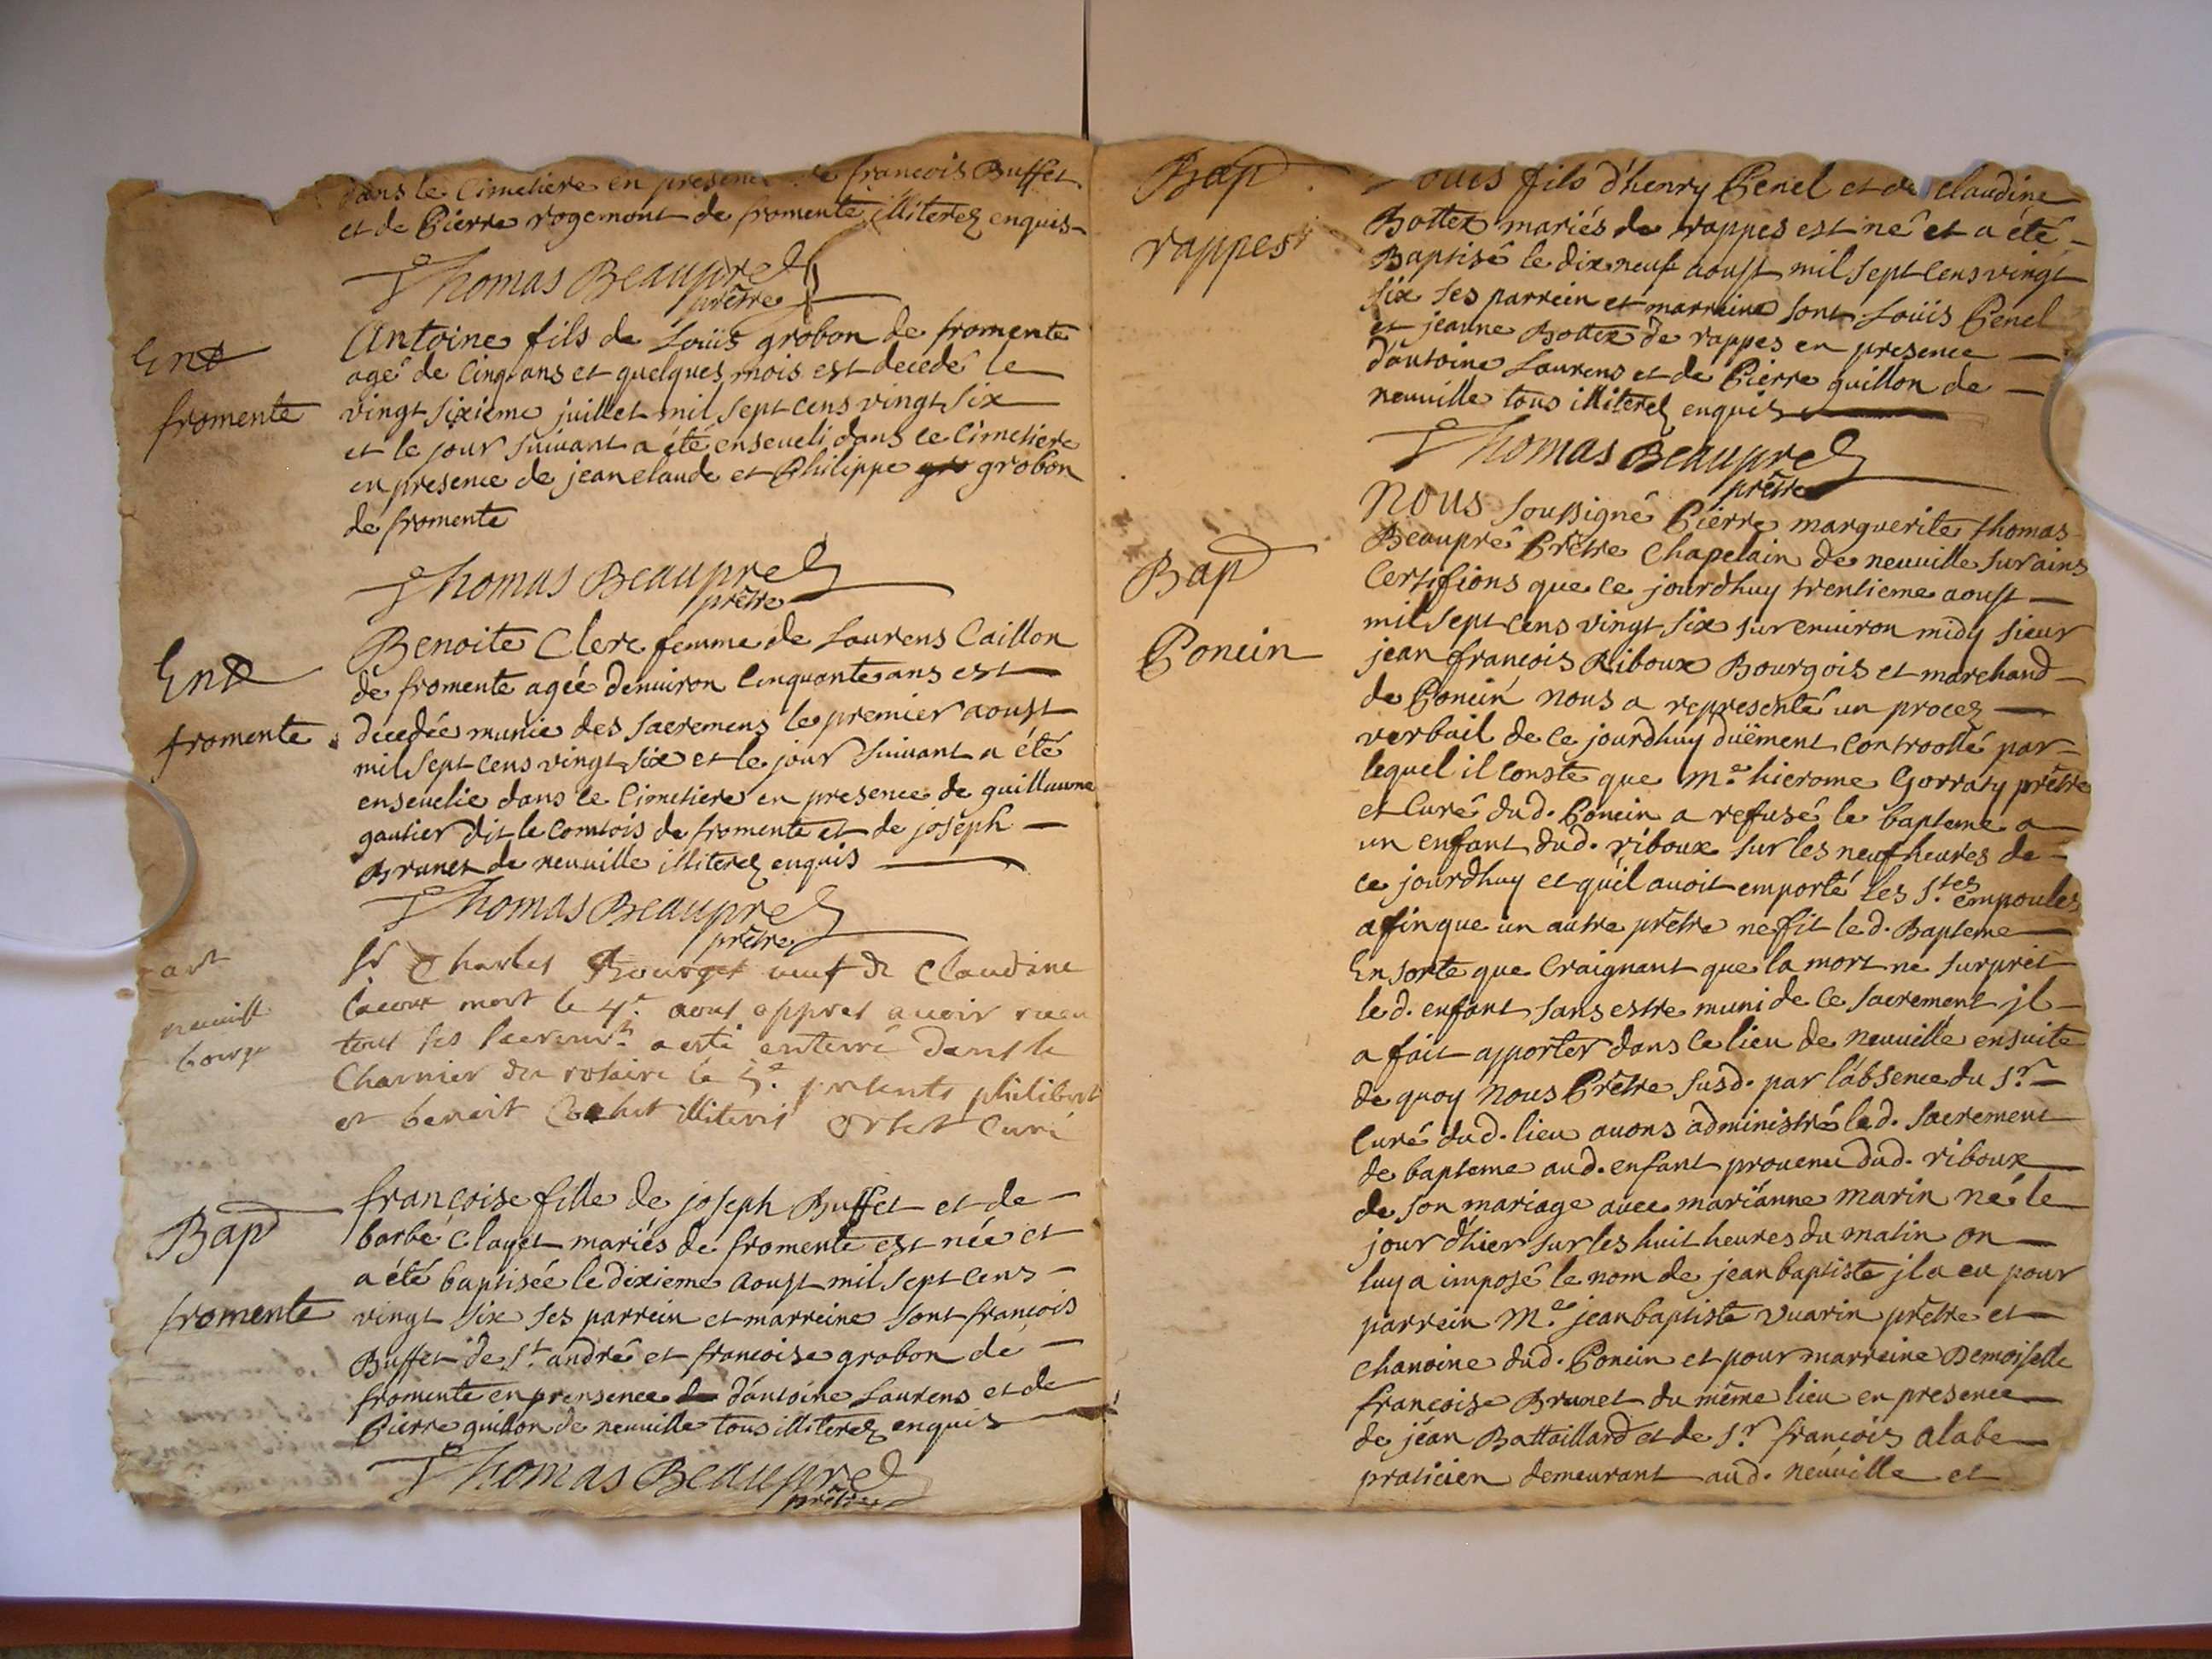 dans le Cimetiere en presence de francois Buffet
et de Pierre rogemont de fromente illiterez enquis
Thomas Beaupré
prêtre
Ent
fromente
Antoine fils de Loüis grobon de fromente
agé de Cinq ans et quelques mois est decedé le
vingt sixieme juillet mil sept cens vingt six
et le jour suivant a été enseveli dans le Cimetiere
en presence de jean claude et Philippe gro grobon
de fromente
Thomas Beaupré
prêtre
Ent
fromente
Benoite Clerc femme de Laurens Caillon
de fromente agée denviron Cinquante ans est
decedée munie des sacremens le premier aoust
mil sept cens vingt six et le jour suivant a été
ensevelie dans le Cimetiere en presence de guillaume
gautier dit le comtois de fromente et de joseph
Brunet de neuville illiterez enquis
Thomas Beaupré
prêtre
neuville
bourge
Sr Charles Bourget veuf de Claudine
mort le 4e aout appres avoir receu
tous ses sacremts a esté enterré dans le
Charnier du rosaire le 5e presents philibert
et benoit Cochet illiteris curé
Bap
fromente
françoise fille de joseph Buffet et de
barbe Clayet mariés de fromente est née et
a été baptisée le dixieme aoust mil sept cens
vingt six ses parrein et marreine sont françois
Buffet de St andré et francoise grobon de
fromente en prensence de d'antoine Laurens et de
Pierre guillon de neuville tous illiterez enquis
Thomas Beaupré
prêtre
Bap
rappes
fils d'henry Genel et de claudine
Bottex mariés de rappes est né et a été
Baptisé le dix neuf aoust mil sept cens vingt
six ses parrein et marreine sont Loüis Genel
et jeanne Bottex de rappes en presence
d'antoine Laurens et de Pierre guillon de
neuville tous illiterez enquis
Thomas Beaupré
prêtre
Bap
Poncin
Nous soussigné Pierre marguerite thomas
Beaupré Prêtre Chapelain de neuville sur ains
Certifions que ce jourdhuy trentieme aoust
mil sept cens vingt six sur environ midy sieur
jean françois Riboux Bourgois et marchand
de Poncin nous a representé un procez
verbail de ce jourdhuy düement controollé par
lequel il conste que Me hierome Gorraty prêtre
et Curé dud. Poncin a refusé le bapteme a
un enfant dud. riboux sur les neuf heures de
ce jourdhuy et quil avoit emporté les Stes empoules
afin que un autre prêtre ne fit led. Bapteme
En sorte que Craignant que la mort ne surprêt
led. enfant sans estre muni de ce sacrement jl
a fait apporter dans ce lieu de neuville ensuite
de quoy nous Prêtre susd. par l'absence du Sr
Curé dud. lieu avons administré led. sacrement
de bapteme aud. enfant provenu dud. riboux
de son mariage avec marianne marin né le
jour d'hier sur les huit heures du matin on
luy a imposé le nom de jean baptiste jl a eu pour
parrein Me jean baptiste vuarin prêtre et
chanoine dud. Poncin et pour marreine Demoiselle
françoise Brunet du même lieu en presence
de jean Battaillard et de Sr françois alabe
praticien demeurant aud. neuville et